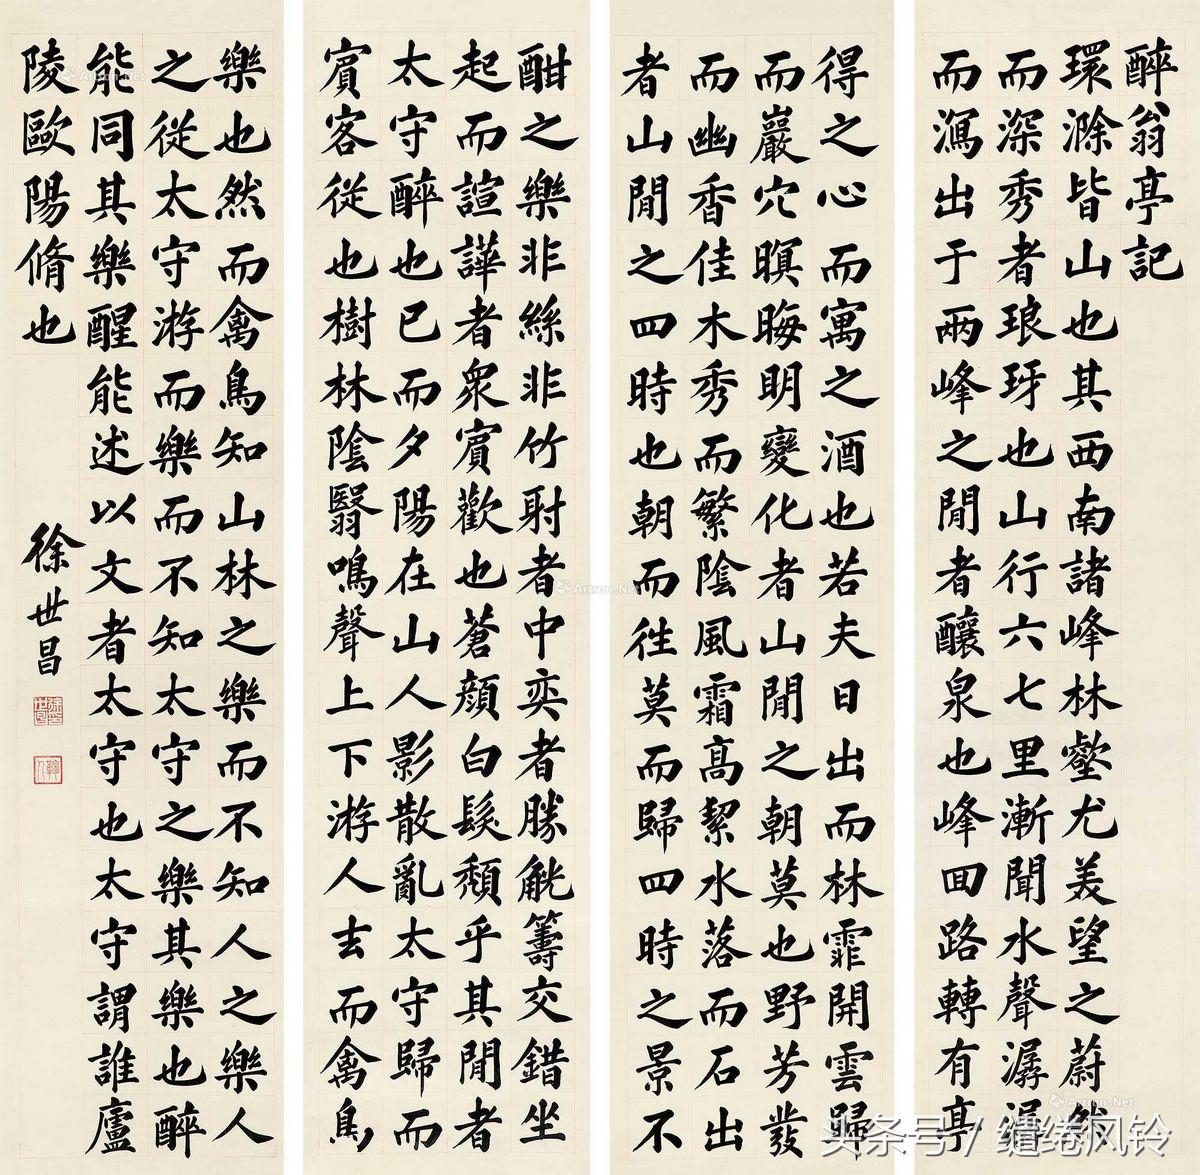 醉翁亭記
環滁皆山也其西南諸峰林壑尤美望之蔚然
而深秀者琅玡也山行六七里漸聞水聲潺潺
而瀉出于兩峰之閒者釀泉也峰回路轉有亭
得之心而寓之酒也若夫日出而林霏開雲歸
而巖穴暝晦明變化者山閒之朝莫也野芳發
而幽香佳木秀而繁陰風霜高絜水落而石出
者山閒之四時也朝而往莫而歸四時之景不
酣之樂非絲非竹射者中奕者勝觥籌交錯坐
起而諠譁者眾賓歡也蒼顏白髮頹乎其閒者
太守醉也已而夕陽在山人影散亂太守歸而
賓客從也樹林陰翳鳴聲上下游人去而禽鳥
樂也然而禽鳥知山林之樂而不知人之樂人
之從太守游而樂而不知太守之樂其樂也醉
能同其樂醒能述以文者太守也太守謂誰廬
陵歐陽脩也
徐世昌
Artron.Net
Artron.Net
Artron.Net
头条号/缱绻风铃